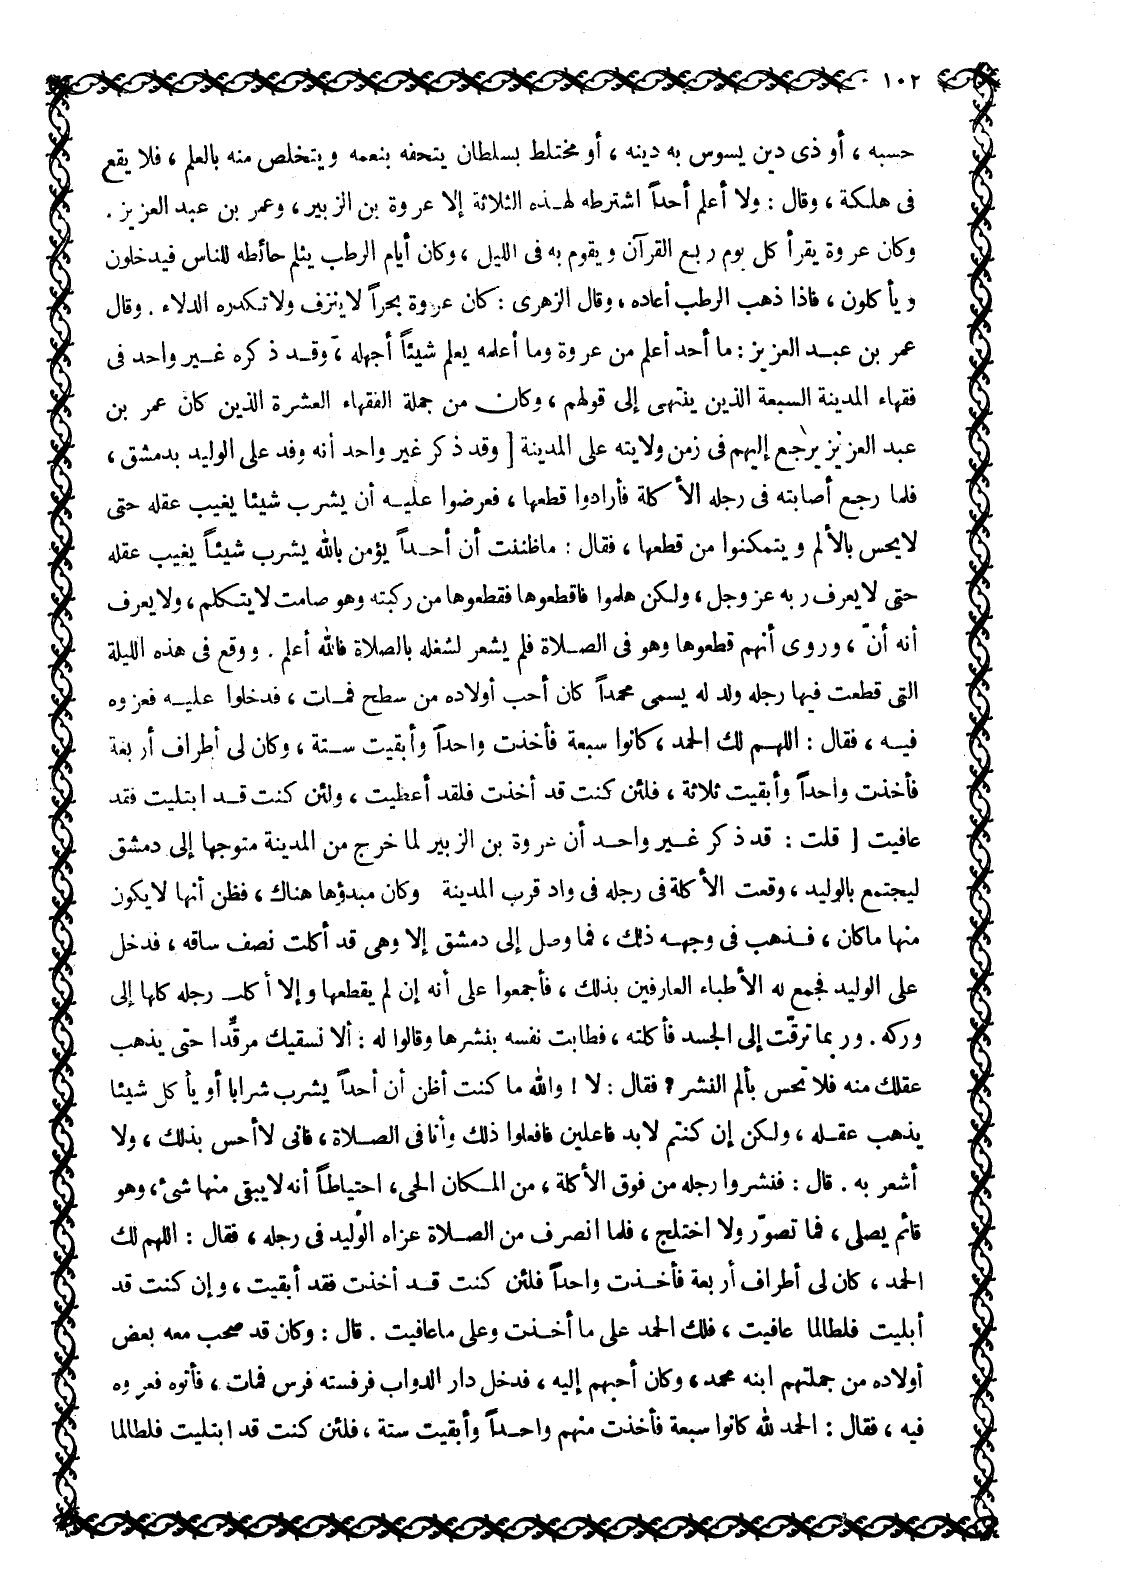 ١٠٢
حسبه ، أو ذى دين يسوس به دينه ، أو مختلط بسلطان يتحفه بنعمه ويتخلص منه بالعلم ، فلا يقع
فى هلكة ، وقال : ولا أعلم أحداً اشترطه لهذه الثلاثة إلا عروة بن الزبير ، وعمر بن عبد العزيز .
وكان عروة يقرأ كل يوم ربع القرآن ويقوم به فى الليل ، وكان أيام الرطب يثلم حائطه للناس فيدخلون
ويأكلون ، فاذا ذهب الرطب أعاده ، وقال الزهرى : كان عروة بحراً لا ينزف ولا تكدره الدلاء . وقال
عمر بن عبد العزيز : ما أحد أعلم من عروة وما أعلمه يعلم شيئاً أجهله ، وقد ذكره غير واحد فى
فقهاء المدينة السبعة الذين ينتهى إلى قولهم ، وكان من جملة الفقهاء العشرة الذين كان عمر بن
عبد العزيز يرجع إليهم فى زمن ولايته على المدينة [ وقد ذكر غير واحد أنه وفد على الوليد بدمشق ،
فلما رجع أصابته فى رجله الأكلة فأرادوا قطعها ، فعرضوا عليه أن يشرب شيئا يغيب عقله حتى
لايحس بالألم ويتمكنوا من قطعها ، فقال : ماظننت أن أحداً يؤمن بالله يشرب شيئاً يغيب عقله
حتى لا يعرف ربه عز وجل ، ولكن هلموا فاقطعوها فقطعوها من ركبته وهو صامت لا يتكلم ، ولا يعرف
أنه أنّ ، وروى أنهم قطعوها وهو فى الصلاة فلم يشعر لشغله بالصلاة فالله أعلم . ووقع فى هذه الليلة
التى قطعت فيها رجله ولد له يسمى محمداً كان أحب أولاده من سطح فمات ، فدخلوا عليه فعزوه
فيه ، فقال : اللهم لك الحمد ، كانوا سبعة فأخذت واحداً وأبقيت ستة ، وكان لى أطراف أربعة
فأخذت واحداً وأبقيت ثلاثة ، فلئن كنت قد أخذت فلقد أعطيت ، ولئن كنت قد ابتليت فقد
عافيت [ قلت : قد ذكر غير واحد أن عروة بن الزبير لما خرج من المدينة متوجها إلى دمشق
ليجتمع بالوليد ، وقعت الأكلة فى رجله فى واد قرب المدينة وكان مبدؤها هناك ، فظن أنها لا يكون
منها ماكان ، فذهب فى وجهه ذلك ، فما وصل إلى دمشق إلا وهى قد أكلت نصف ساقه ، فدخل
على الوليد فجمع له الأطباء العارفين بذلك ، فأجمعوا على أنه إن لم يقطعها وإلا أكلت رجله كلها إلى
وركه . وربما ترقّت إلى الجسد فأكلته ، فطابت نفسه بنشرها وقالوا له : ألا نسقيك مرقّدا حتى يذهب
عقلك منه فلا تحس بألم النشر ? فقال : لا ! والله ما كنت أظن أن أحداً يشرب شرابا أو يأكل شيئا
يذهب عقله ، ولكن إن كنتم لابد فاعلين فافعلوا ذلك وأنا فى الصلاة ، فانى لا أحس بذلك ، ولا
أشعر به . قال : فنشروا رجله من فوق الأكلة ، من المكان الحى ، احتياطاً أنه لا يبقى منها شىء ، وهو
قائم يصلى ، فما تصوّر ولا اختلج ، فلما انصرف من الصلاة عزاه الوليد فى رجله ، فقال : اللهم لك
الحمد ، كان لى أطراف أربعة فأخذت واحداً فلئن كنت قد أخذت فقد أبقيت ، وإن كنت قد
أبليت فلطالما عافيت ، فلك الحمد على ما أخذت وعلى ماعافيت . قال : وكان قد صحب معه بعض
أولاده من جملتهم ابنه محمد ، وكان أحبهم إليه ، فدخل دار الدواب فرفسته فرس فمات ، فأتوه فعزوه
فيه ، فقال : الحمد لله كانوا سبعة فأخذت منهم واحداً وأبقيت ستة ، فلئن كنت قد ابتليت فلطالما